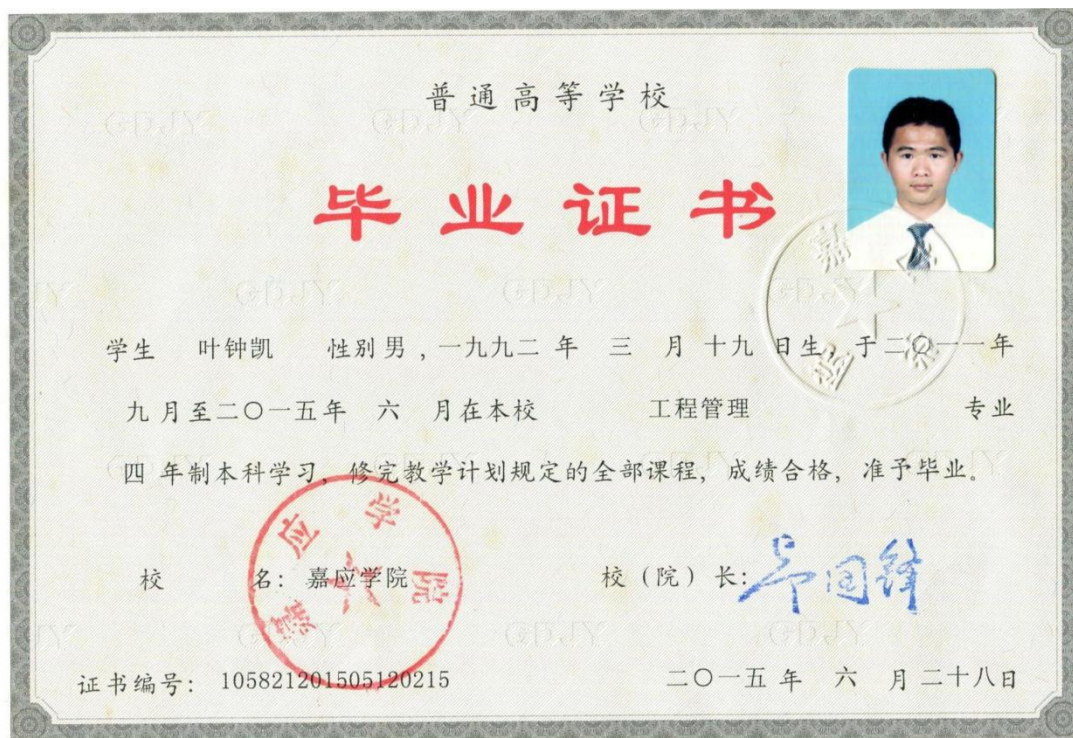 普通高等学校
毕业证书
学生 叶钟凯 性别 男 , 一九九二 年 三 月 十九 日生, 于二〇一一年
九 月至二〇一五年 六 月在本校 工程管理 专业
四 年制本科学习, 修完教学计划规定的全部课程, 成绩合格, 准予毕业。
校 名: 嘉应学院
校 (院) 长:
嘉应学院
证书编号: 105821201505120215
二〇一五 年 六 月 二十八日
GDJY
嘉应学院